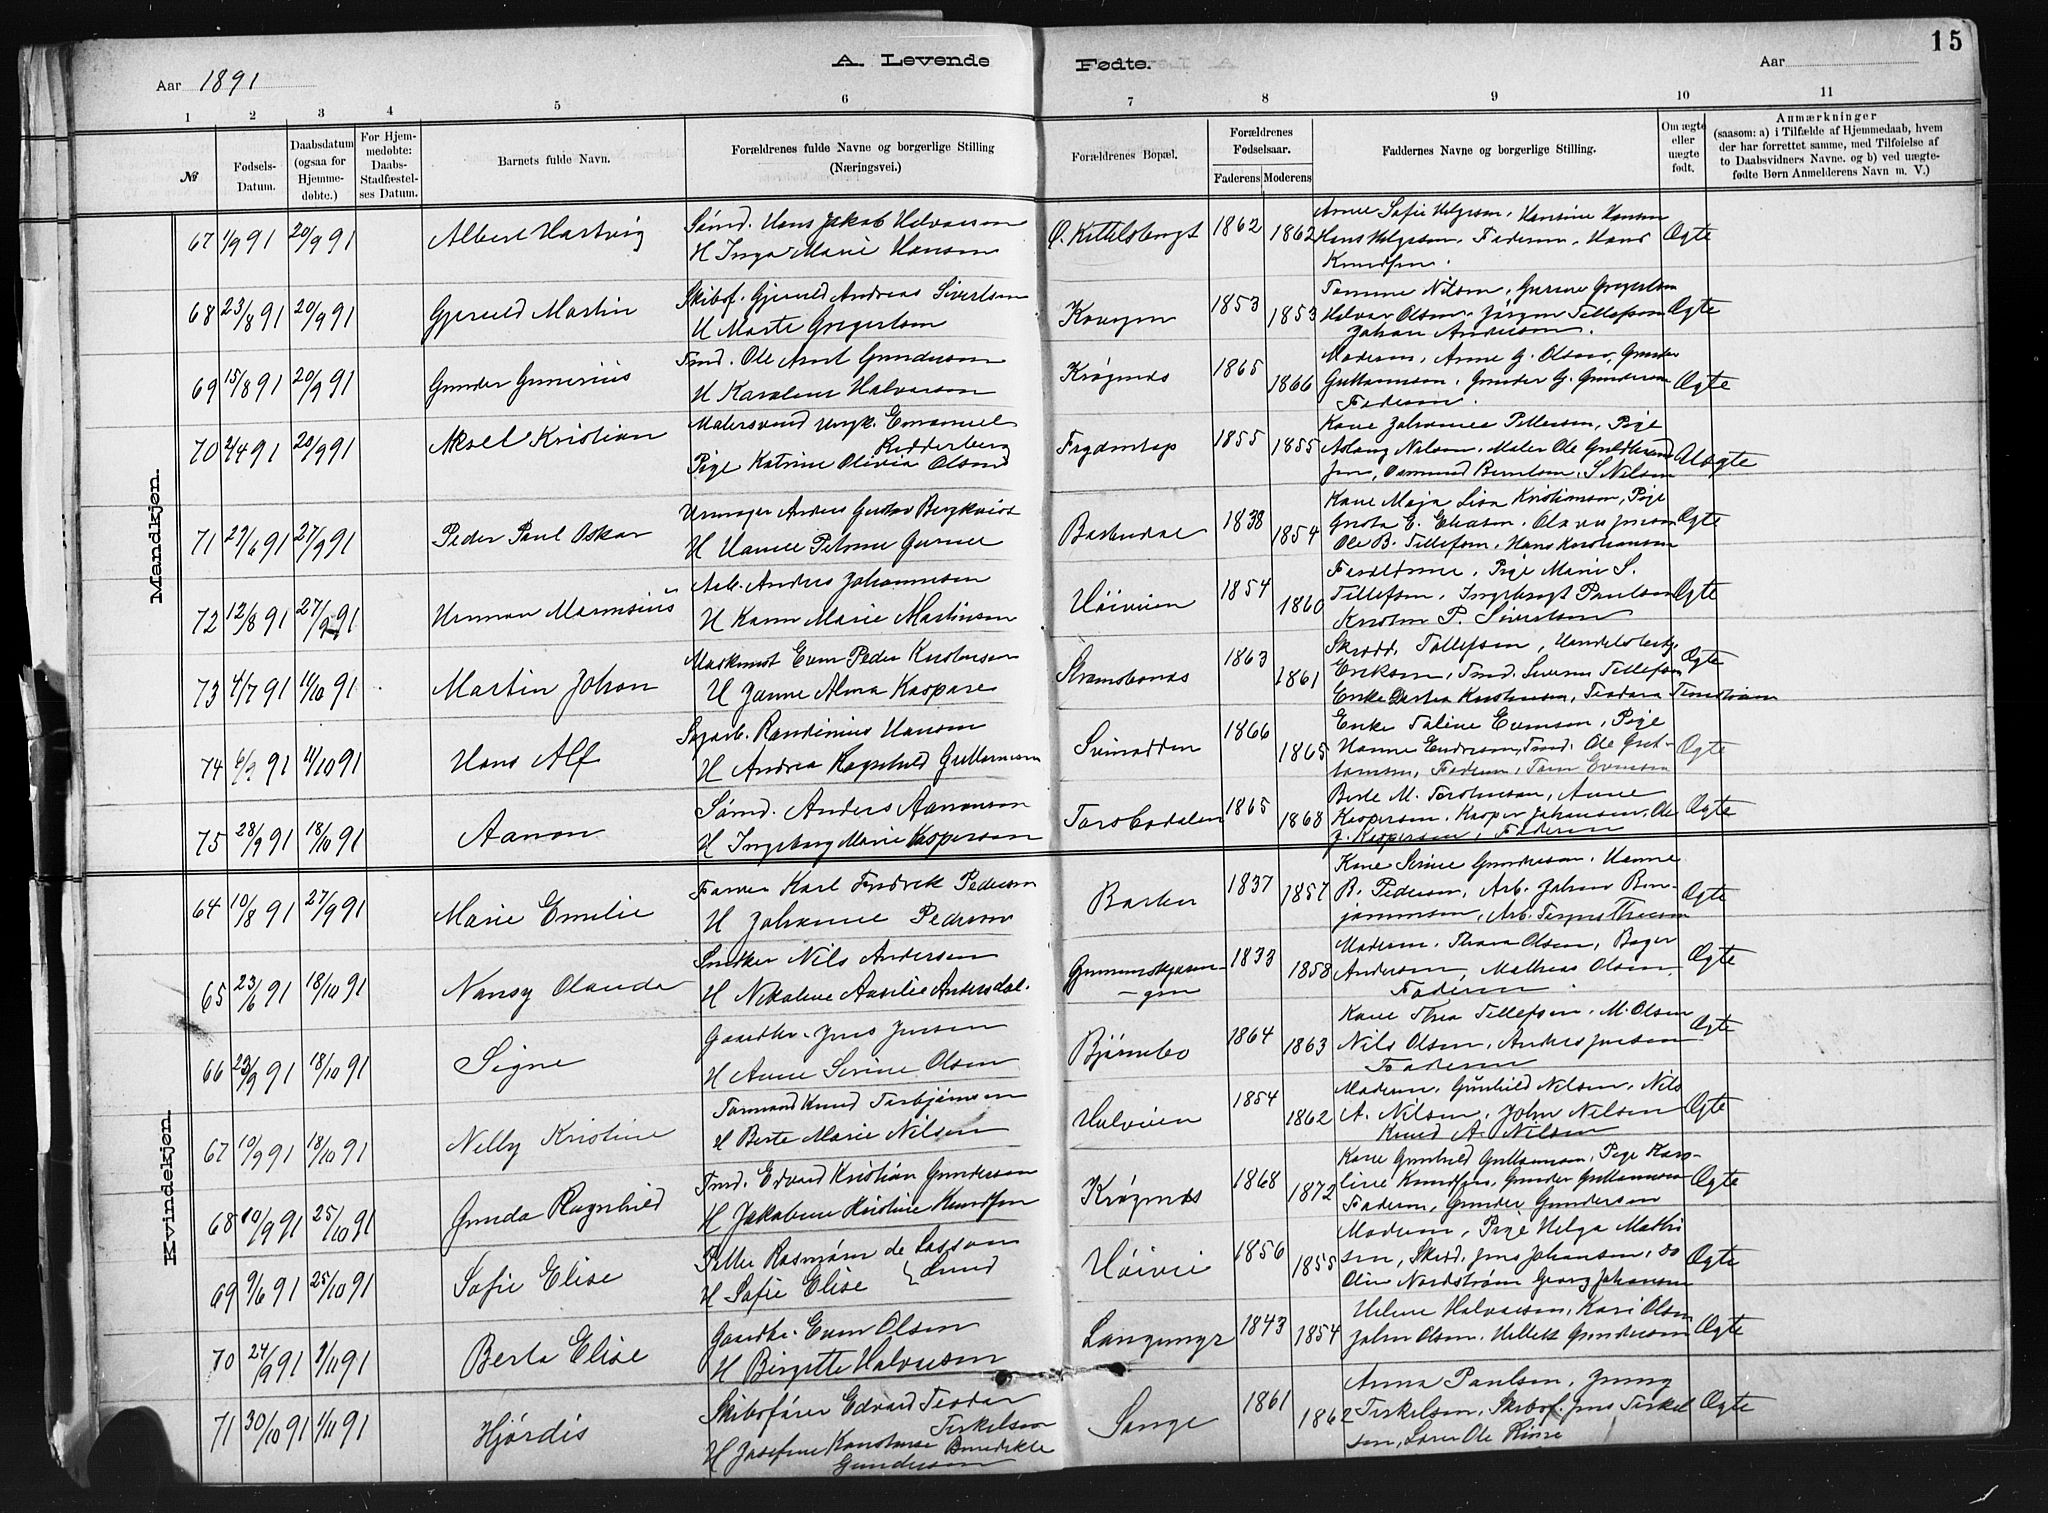 15
A. Levende Fødte.
Aar 1891
Aar
1 2 3 4 5 6 7 8 9 10 11
№
Fødsels-Datum.
Daabsdatum (ogsaa for Hjemmedøbte.)
For Hjemmedøbte: Daabs-Stadfæstelses Datum.
Barnets fulde Navn.
Forældrenes fulde Navne og borgerlige Stilling (Næringsvei.)
Forældrenes Bopæl.
Forældrenes Fødselsaar.
Faderens Moderens
Faddernes Navne og borgerlige Stilling.
Om ægte eller uægte født.
Anmærkninger (saasom: a) i Tilfælde af Hjemmedaab, hvem der har forrettet samme, med Tilføielse af to Daabsvidners Navne. og b) ved uægtefødte Børn Anmelderens Navn m. V.)
Mandkjøn.
67 1/9 91 20/9 91 Albert Hartvig
Sømd. Hans Jakob Halvorsen
H Inga Marie Hansen
1862 1862
Anne Sofie Helgesen, Hansine Hansen
Hans Helgesen, Faderen, Hans
Knudsen.
Ægte
68 23/8 91 20/9 91 Gjeruld Martin
Skibsf. Gjeruld Andreas Sivertsen
H Marte Gregertsen
1853 1853
Tomine Nilsen, Gurine Gregertsen
Halvor Olsen, Jörgen Tellefsen
Johan Andersen.
Ægte
69 15/8 91 20/9 91 Gunder Gunerius
Tmd. Ole Arnt Gundersen
H Karoline Halvorsen
Krøgenes
1865 1866
Moderen, Anne G. Olsen, Gunder
Guttormsen, Gunder G. Gundersen
Faderen.
Ægte
70 2/4 91 20/9 91 Aksel Kristian
Malersvend Ungk. Emanuel
Redderberg
Pige Katrine Olivia Olsen
1855 1855
Kone Johanne Pettersen, Pige
Aslaug Nilsen, Maler Ole
Jens, Osmund Berntsen, S. Nilsen
Uægte
71 27/6 91 27/9 91 Peder Paul Oskar
Urmager Anders Gustav Bergkvist
H Hanne Petrine
Barbudal
1838 1854
Kone Maja Lisa Kristiansen, Pige
Grota E. Eliasen, Olava Jensen
Ole B. Tellefsen, Hans Kristiansen
Ægte
72 12/8 91 27/9 91 Herman Marensius
Arb. Anders Johannesen
H Karen Marie Martinsen
Høiveien
1854 1860
Forældrene, Pige Marie S.
Tellefsen, Ingebregt Paulsen
Kristen P. Sivertsen
Ægte
73 4/7 91 11/10 91 Martin Johan
Maskinist Even Peder Kristensen
H Janne Alma Kaspara
Strømsbonæs
1863 1861
Skrædd. Tellefsen,
Eriksen, Tmd. Severin Tellefsen
Enke Dortea Kristensen, Teodora
Ægte
74 6/9 91 11/10 91 Hans Alf
Sagarb. Randinius Hansen
H Andrea Ragnhild Guttormsen
Svinodden
1866 1865
Enke Taline Evensen, Pige
Hanne Endresen, Tmd. Ole Gut-
tormsen, Faderen, Tom Evensen
Ægte
75 28/9 91 18/10 91 Aanon
Sømd. Anders Aanonsen
H Ingeborg Marie Kaspersen
Torsbudalen
1865 1868
Berte M. Torstensen, Anne
Kaspersen, Kasper Johansen, Ole
J. Kaspersen, Faderen
Ægte
Kvindekjøn.
64 10/8 91 27/9 91 Marie Emilie
Farver Karl Fredrik Pedersen
H Johanne Pedersen
Barbu
1837 1857
Kone Serine Gundersen, Hanne
B. Pedersen, Arb. Johan Ben-
jaminsen, Arb. Terjus
Ægte
65 23/6 91 18/10 91 Nansy Olanda
Snedker Nils Andersen
H Nikoline Aasilie Andersdat.
1833 1858
Moderen, Thora Olsen, Bager
Andersen, Mathias Olsen,
Faderen.
Ægte
66 23/9 91 18/10 91 Signe
Gaardbr. Jens Jensen
H Anne Serine Olsen
Bjørnebo
1864 1863
Kone Thea Tellefsen, M. Olsen
Nils Olsen, Anders Jensen
Faderen
Ægte
67 10/9 91 18/10 91 Nelly Kristine
Tømmermd Knud Torbjørnsen
H Berte Marie Nilsen
1854 1862
Moderen, Gunhild Nilsen, Nils
A. Nilsen, John Nilsen
Knud A. Nilsen
Ægte
68 10/9 91 25/10 91 Gunda Ragnhild
Tmd. Edvard Kristian Gundersen
H Jakobine Kristine Knudsen
Krøgenes
1868 1872
Kone Gunhild Guttormsen, Pige Karo-
line Knudsen, Gunder Guttormsen
Faderen, Gunder Gundersen
Ægte
69 9/6 91 25/10 91 Sofie Elise
Petter Rasmus de Lasson
H Sofie Elise Lund
Høivei
1856 1855
Moderen, Pige Helga Mathi
sen, Skrdd. Jens Johansen, do
Olin Nordstrøm Georg Johansen
Ægte
70 24/9 91 1/11 91 Berta Elise
Gaardbr. Even Olsen
H Birgitte Halvorsen
1843 1854
Helene Halvorsen, Kari Olsen
John Olsen, Gundersen
Ægte
71 30/10 91 1/11 91 Hjördis
Skibsfører Edvard Teodor
Terkelsen
H Josefine Konstanse Benedikte
Gundersen
Songe
1861 1862
Anna Paulsen, Jenny
Terkelsen, Skibsf. Jens Terkel
sen,
Ægte